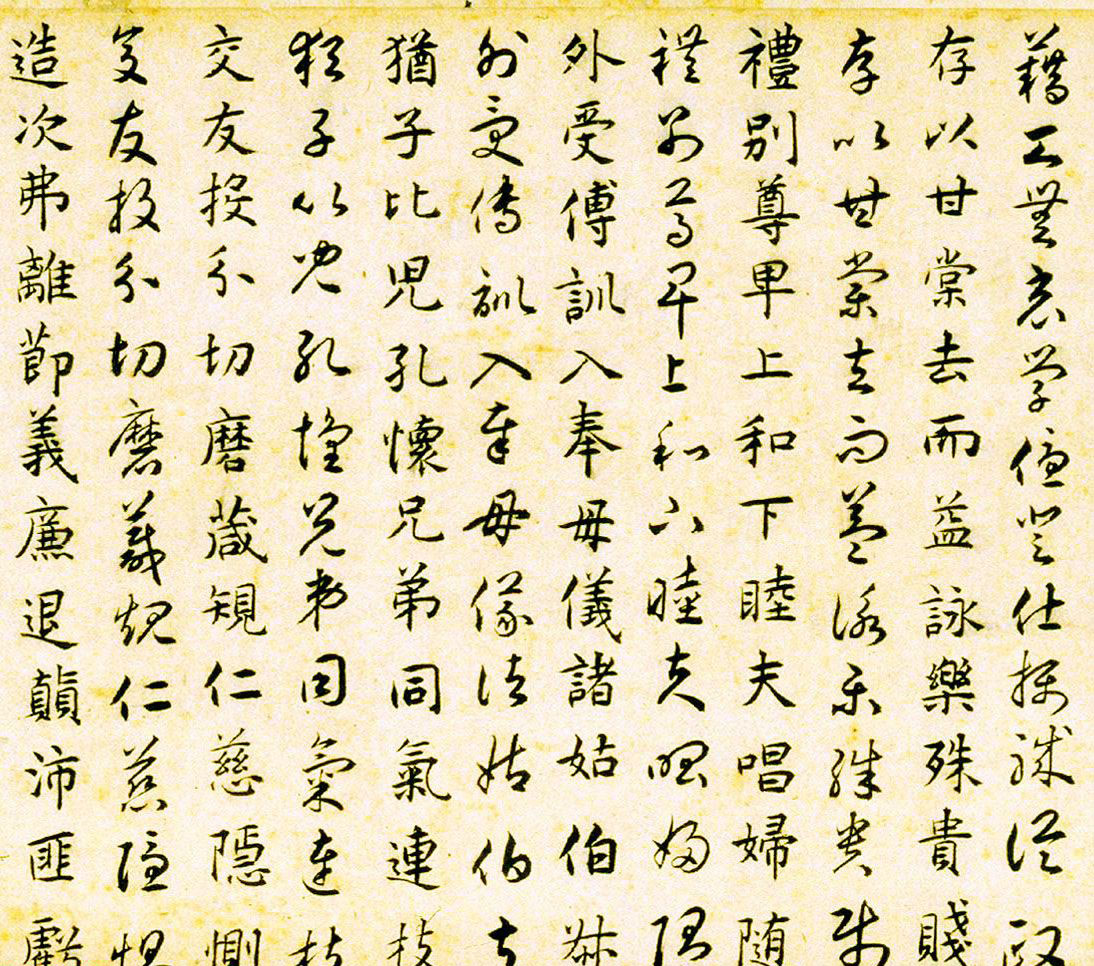 藉甚無竟學優登仕攝職從政
存以甘棠去而益詠樂殊貴賤
存以甘棠去而益詠樂殊貴賤
禮別尊卑上和下睦夫唱婦随
禮別尊卑上和下睦夫唱婦随
外受傅訓入奉母儀諸姑伯叔
外受傅訓入奉母儀諸姑伯叔
猶子比児孔懷兄弟同氣連枝
猶子比児孔懷兄弟同氣連枝
交友投分切磨箴規仁慈隱惻
交友投分切磨箴規仁慈隱惻
造次弗離節義廉退顛沛匪虧